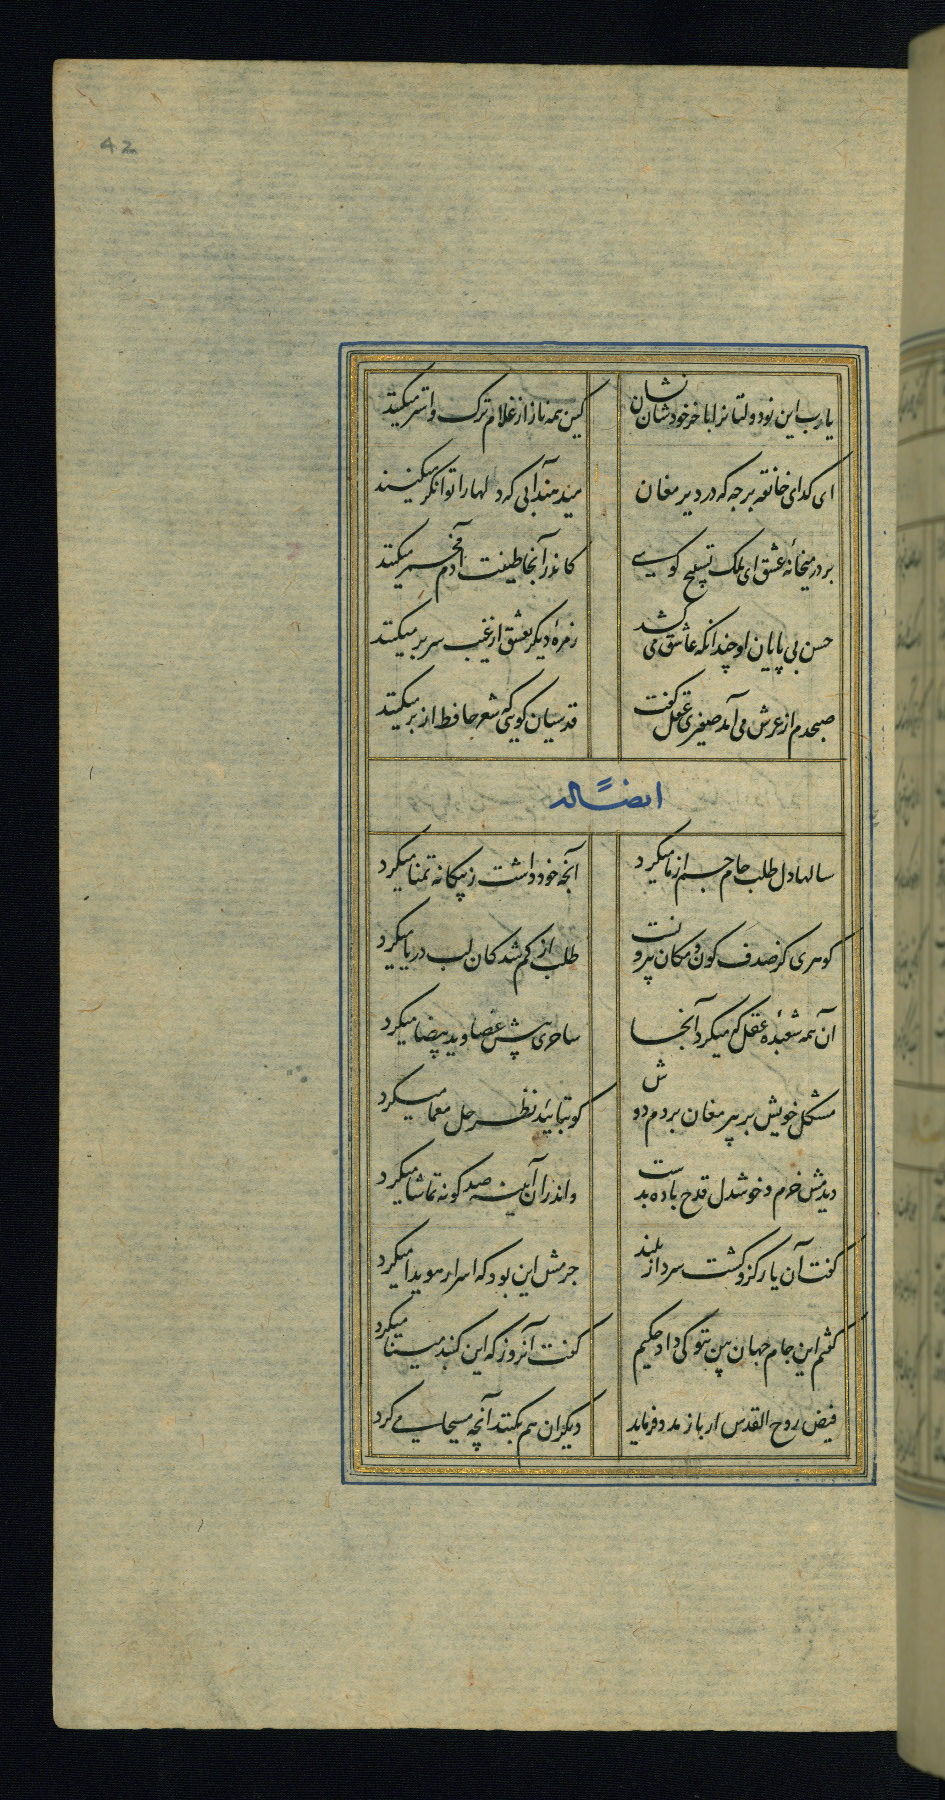 42
یارب این نودولتانرا با خر خودشان نشان
کین همه ناز از غلام ترک و استر میکنند
ای کدای خانقه برجه که در دیر مغان
میدهند آبی که دلهارا توانکر میکنند
بر در میخانهٔ عشق ای ملک تسبیح کوی
کاندر آنجا طینت آدم مخمر میکنند
حسن بی پایان او چندانکه عاشق می کشد
زمرهٔ دیکر بعشق از غیب سر بر میکنند
صبحدم از عرش می آمد صفیری عقل کفت
قدسیان کویی که شعر حافظ از بر میکنند
ایضاً له
سالها دل طلب جام جم از ما میکرد
آنچه خود داشت ز بیکانه تمنا میکرد
کوهری کز صدف کون و مکان بیرونست
طلب از کم شدکان لب دریا میکرد
آن همه شعبده عقل که میکرد آنجا
ساحری پیش عصا و ید بیضا میکرد
مشکل خویش بر پیر مغان بردم دوش
کو بتایید نظر حل معما میکرد
دیدمش خرم و خوشدل قدح باده بدست
واندران آینه صد کونه تماشا میکرد
کفت آن یار کزو کشت سر دار بلند
جرمش این بود که اسرار هویدا میکرد
کفتم این جام جهان بین بتو کی داد حکیم
کفت آنروز که این کنبد مینا میکرد
فیض روح القدس ار باز مدد فرماید
دیکران هم بکنند آنچه مسیحا می کرد